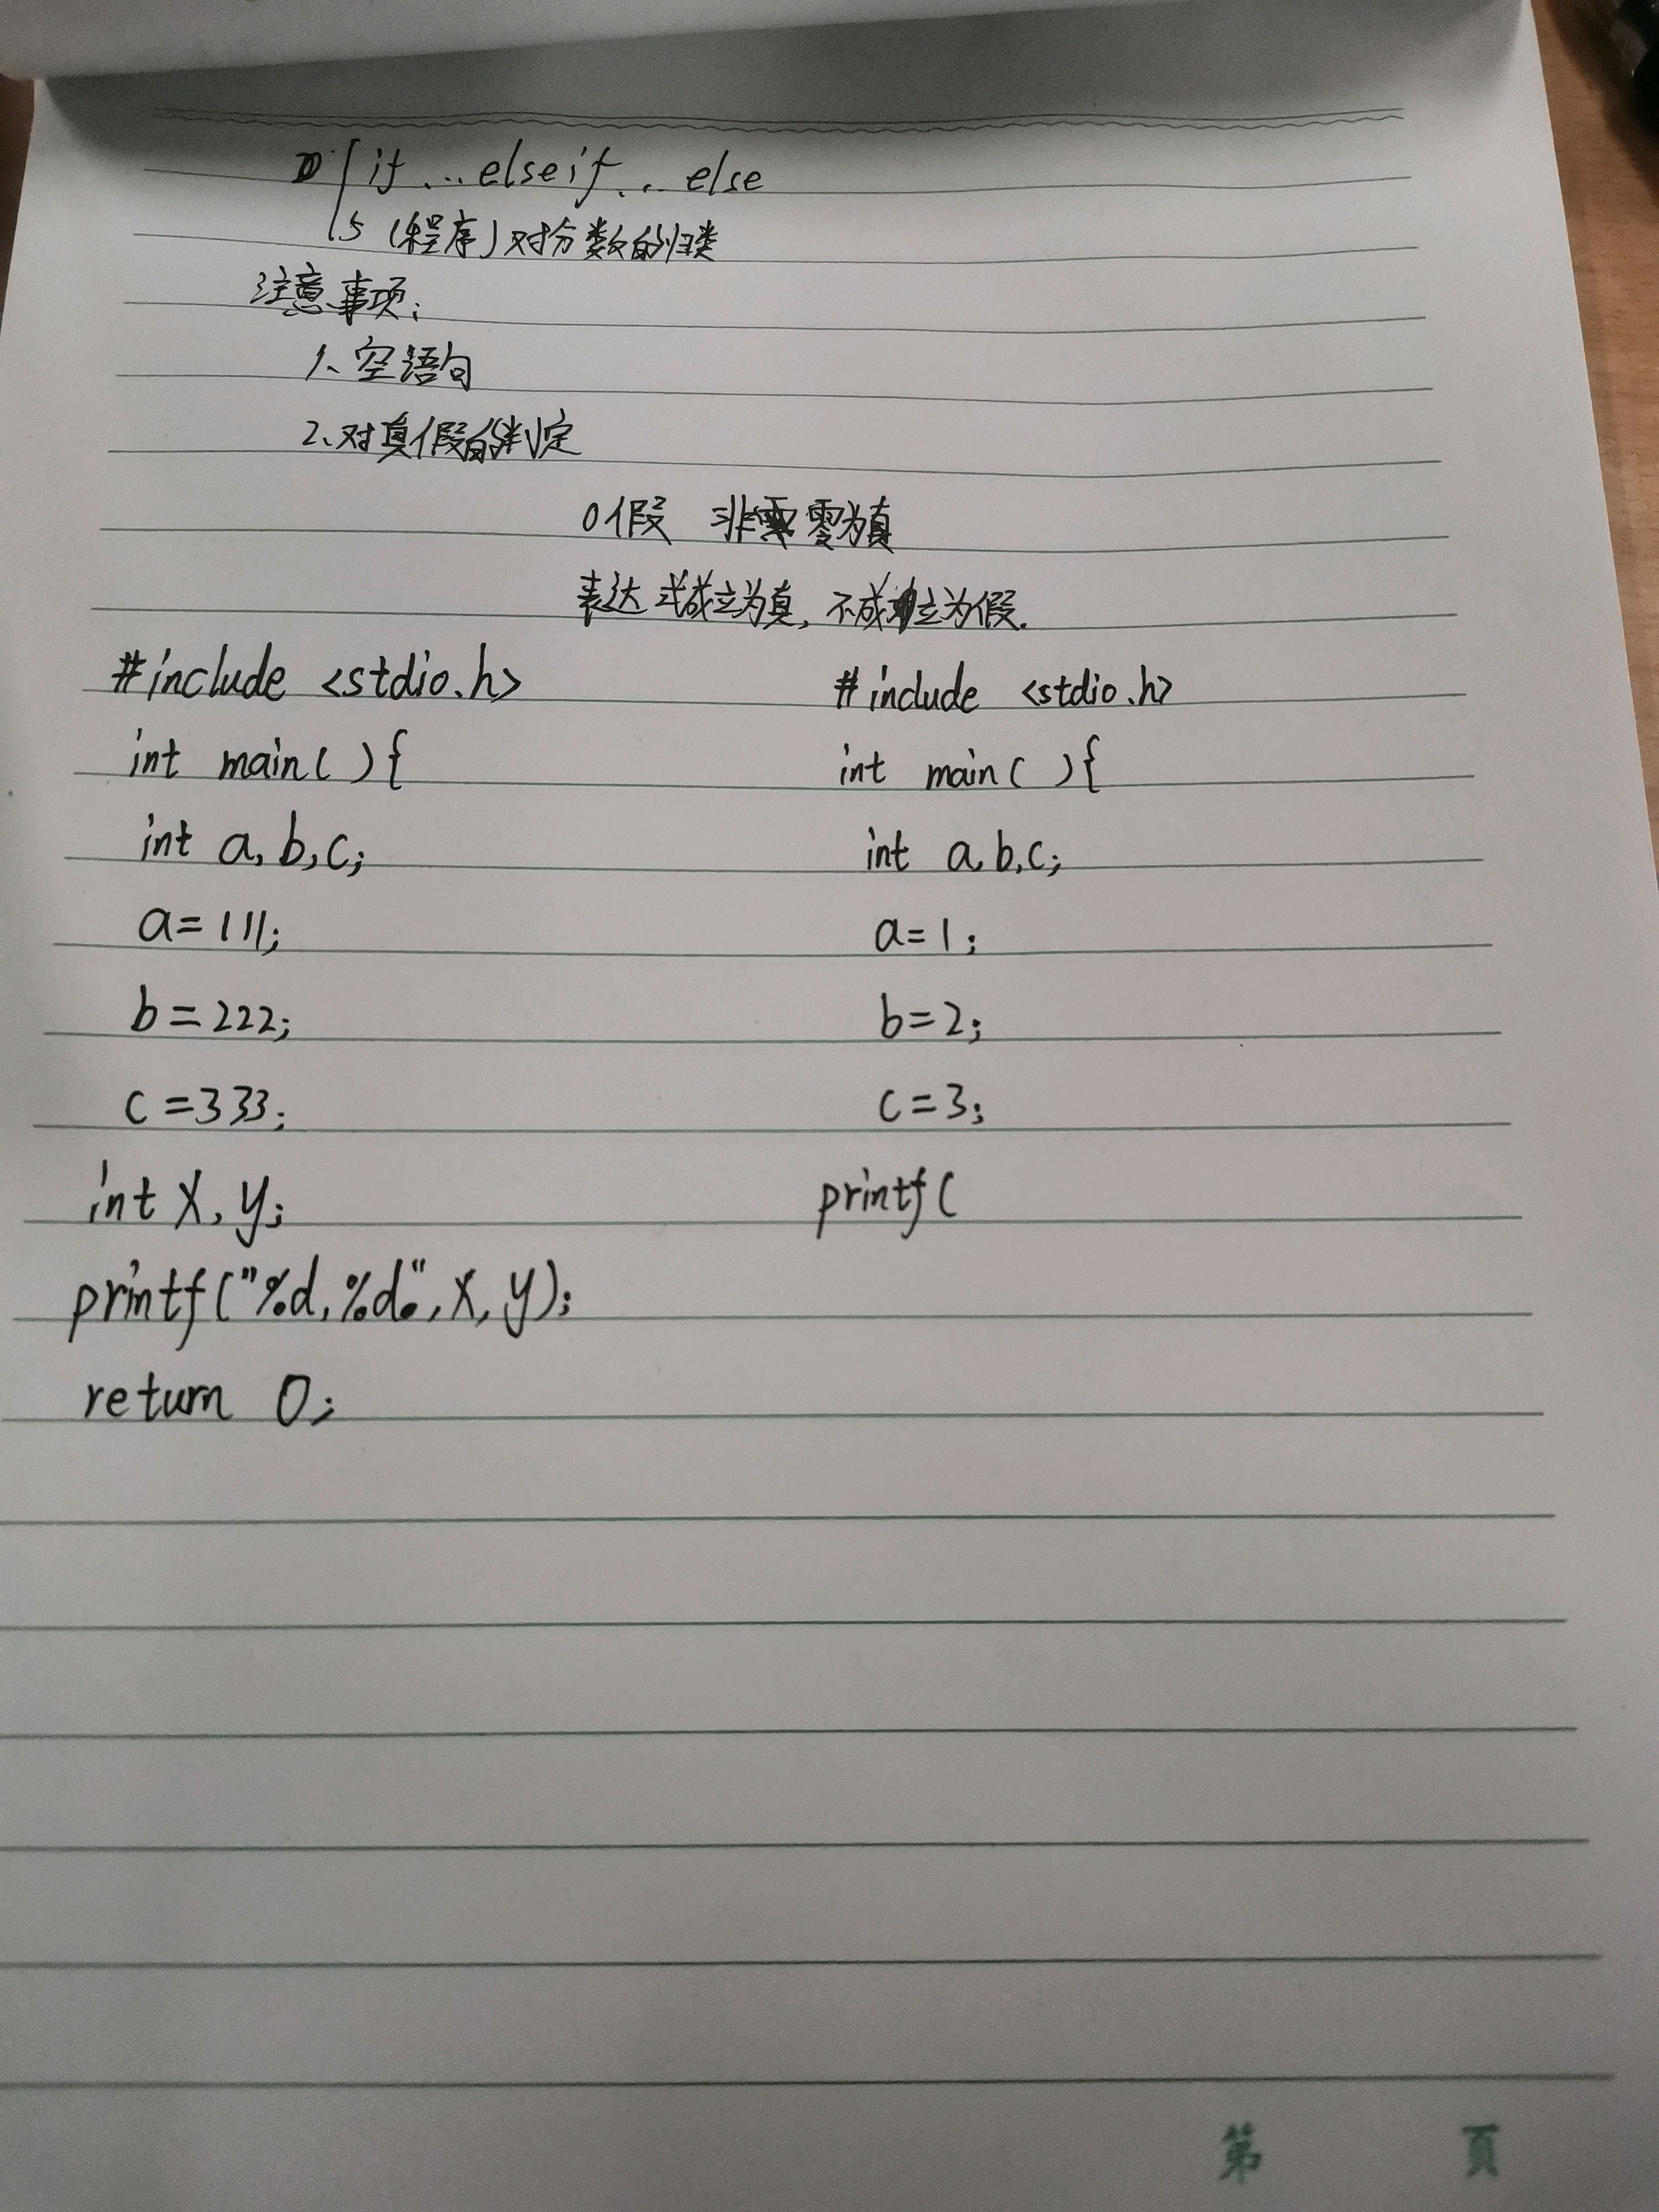 if...else if...else
5 (程序) 对分数的归类
注意事项:
1、空语句
2、对真假的判定
0假 非零为真
表达式成立为真, 不成立为假.
#include <stdio.h>
int main( ){
int a, b, c;
a=111;
b=222;
c=333;
int x, y;
printf("%d, %d", x, y);
return 0;
#include <stdio.h>
int main( ){
int a, b, c;
a=1;
b=2;
c=3;
printf(
第 頁